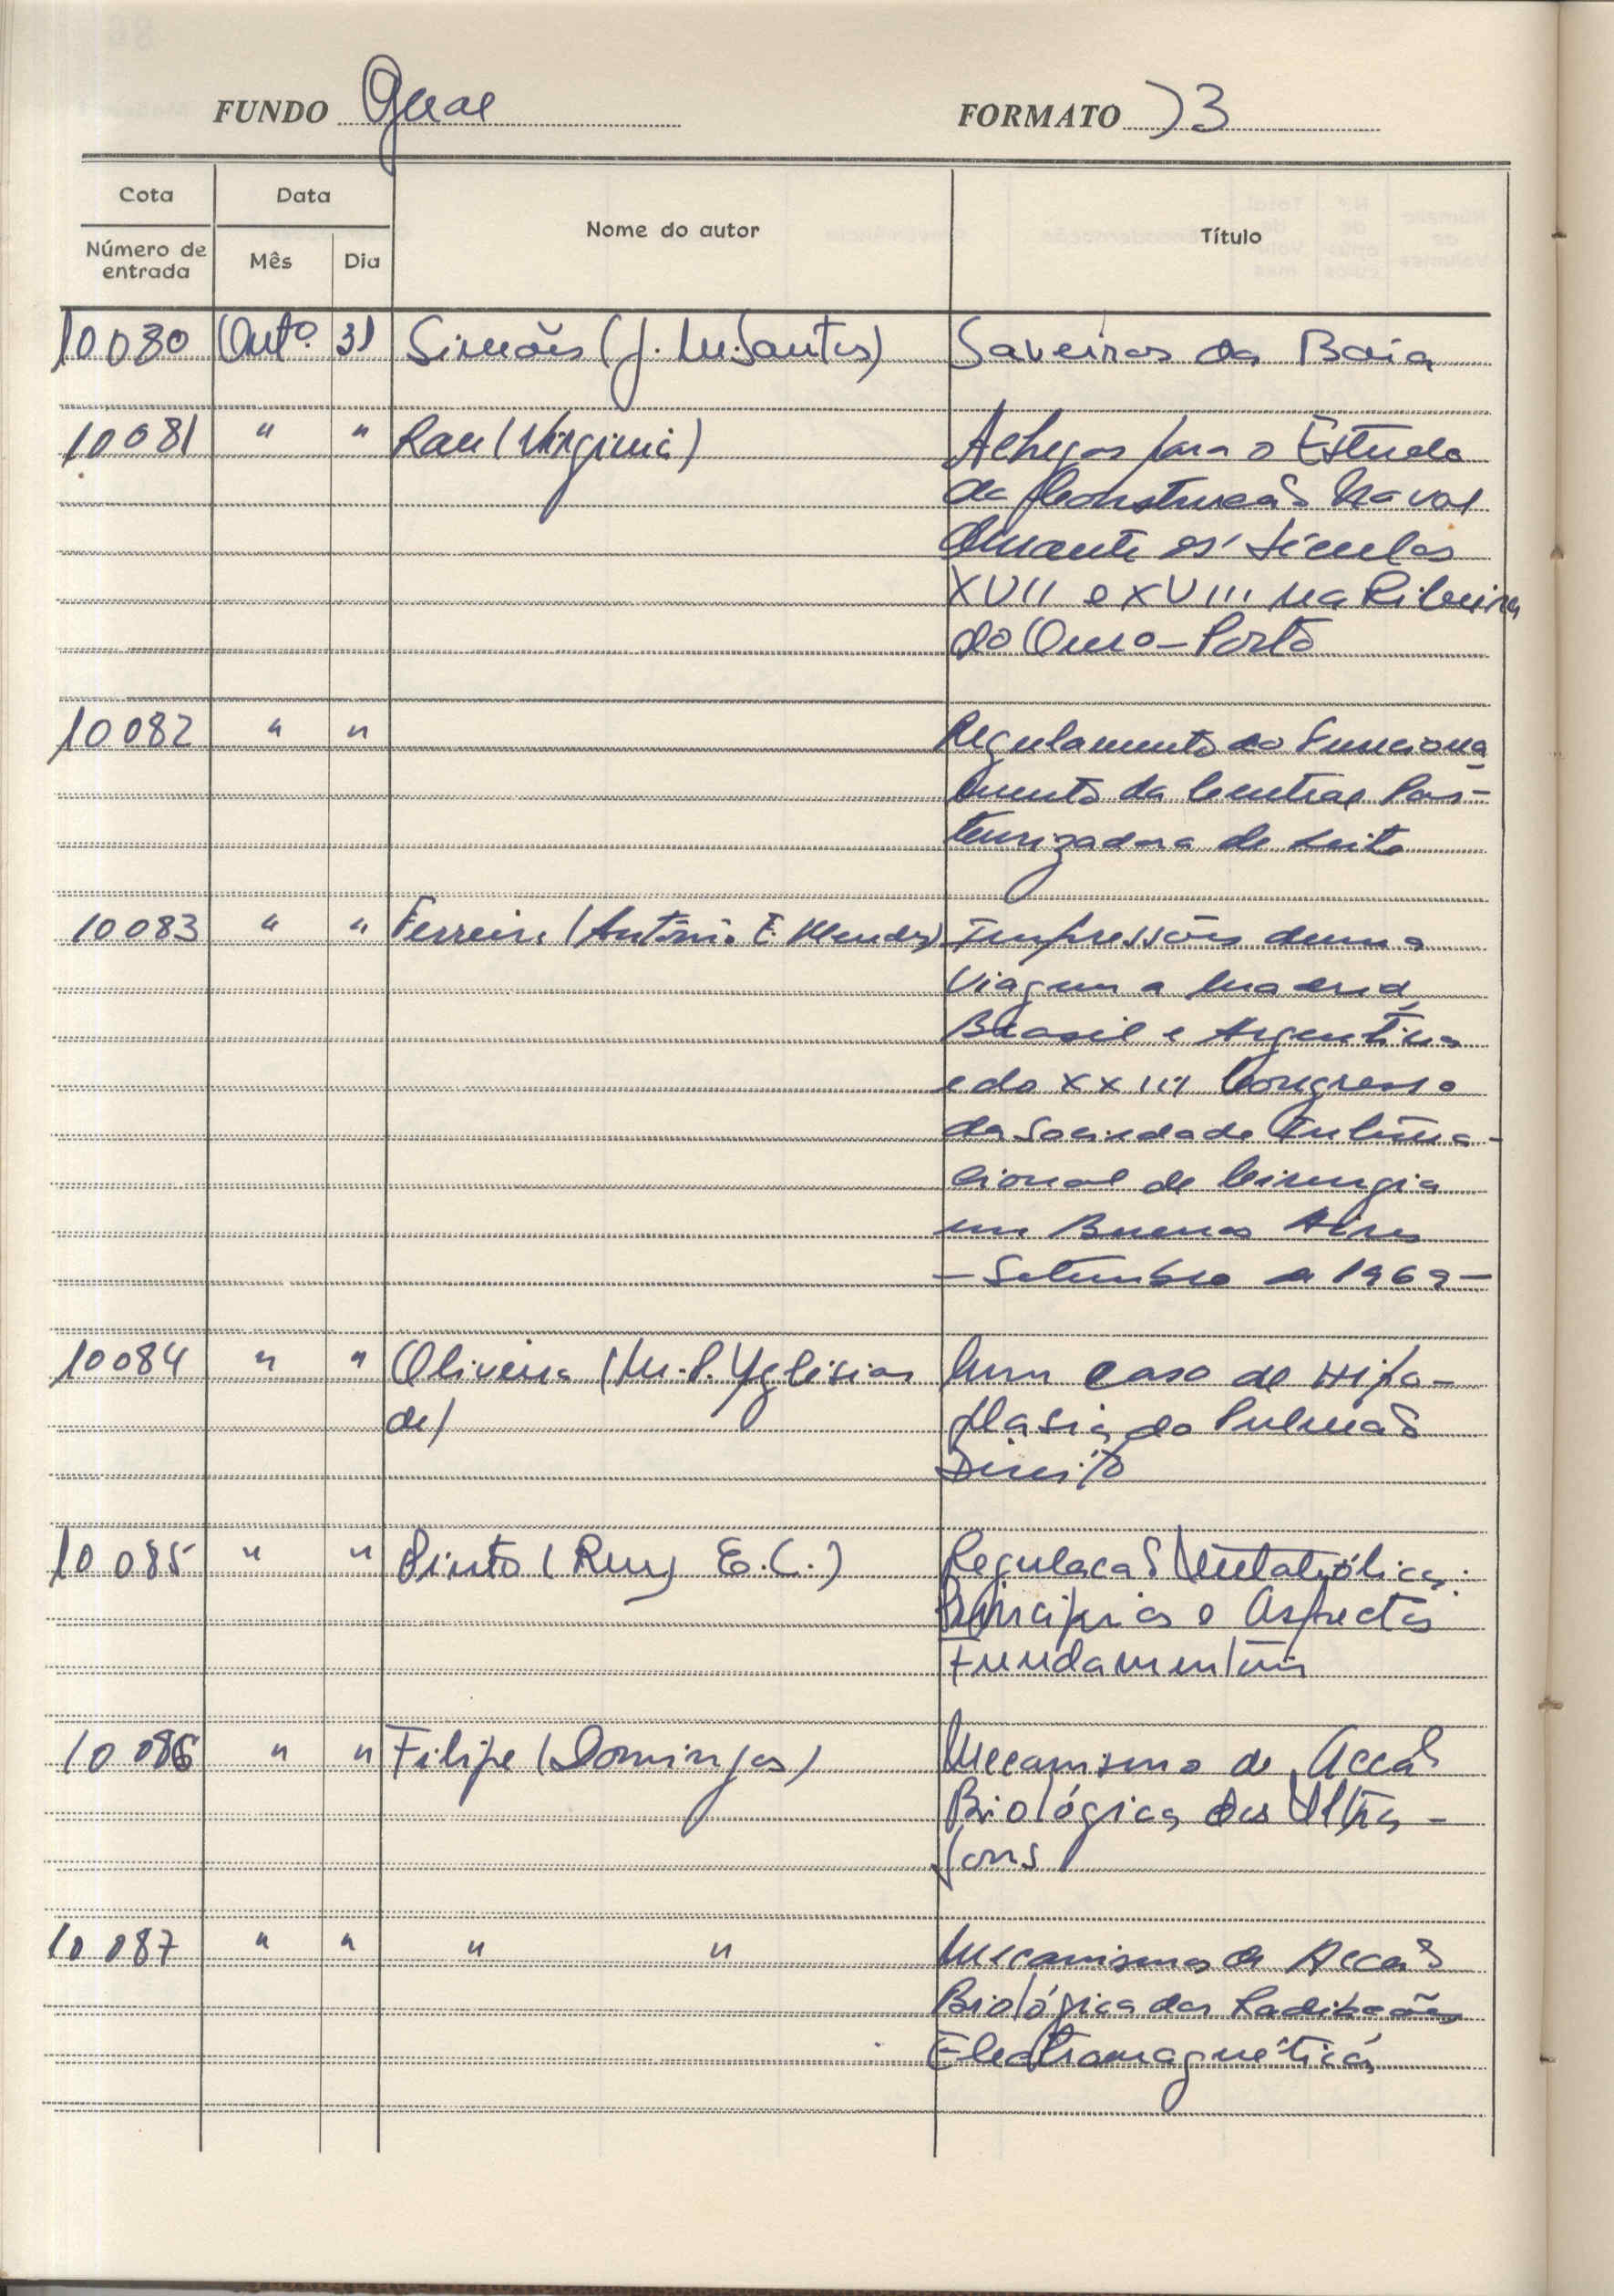 FUNDO Geral FORMATO )3
Cota Data Nome do autor Título
Número de entrada Mês Dia
10080 Outº. 31 Simões (J. M. Santos) Saveiros da Baia
10081 " " Rau (Virginia) Achegas para o Estudo
da Construcão Naval
durante os séculos
XVII e XVIII na Ribeira
do Ouro - Porto
10082 " " Regulamento do Funciona
mento da Central Pas-
teurizadora de Leite
10083 " " Ferreira (António E. Mendes) Impressões duma
Viagem a Madeira,
Brasil e Argentina
e do XXIII Congresso
da Sociedade Interna-
cional de Cirurgia
em Buenos Aires
- Setembro de 1969 -
10084 " " Oliveira (M. P. Yglésias Um caso de Hipo-
de) plasia do Pulmão
Direito
10085 " " Pinto (Ruy E. C.) Regulacão Metabólica:
Principios e Aspectos
Fundamentais
10086 " " Filipe (Domingos) Mecanismo de Accão
Biológica dos Ultra-
sons
10087 " " " " Mecanismos de Accão
Biológica das Radiacões
Electromagnéticas